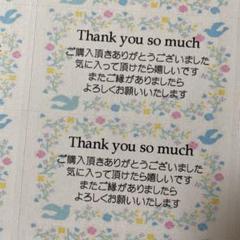 Thank you so much
ご購入頂きありがとうございました
気に入って頂けたら嬉しいです
またご縁がありましたら
よろしくお願いいたします
Thank you so much
ご購入頂きありがとうございました
気に入って頂けたら嬉しいです
またご縁がありましたら
よろしくお願いいたします